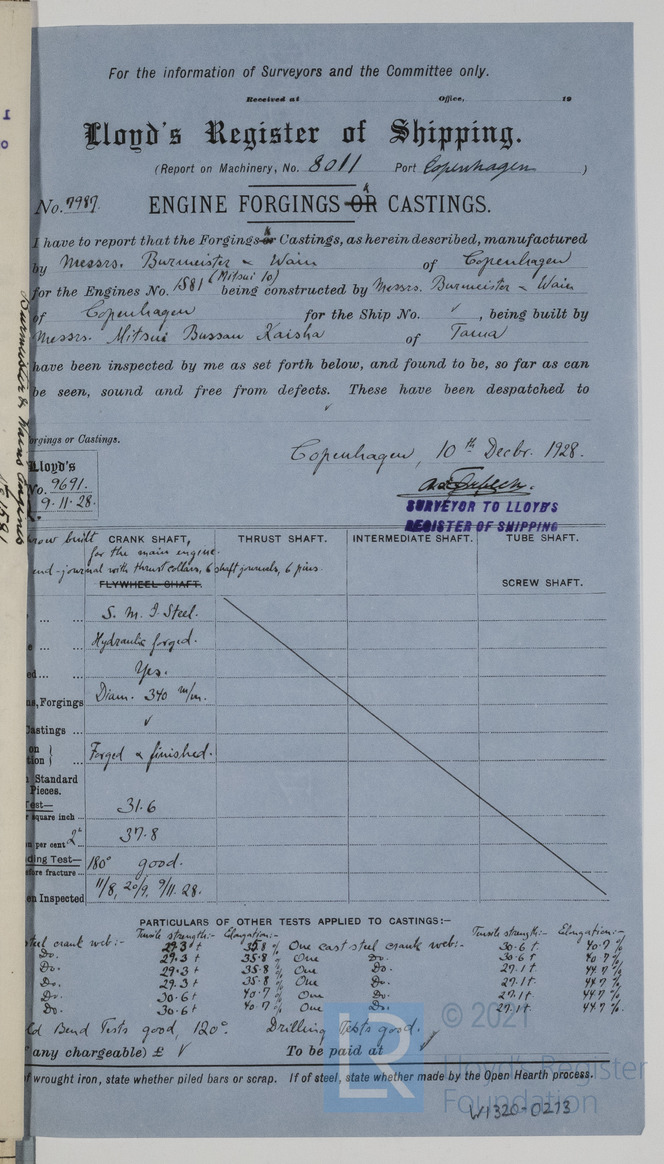 For the information of Surveyors and the Committee only.
Received at Office, 19
Lloyd's Register of Shipping.
(Report on Machinery, No. 8011 Port Copenhagen )
No. 7987. ENGINE FORGINGS OR & CASTINGS.
I have to report that the Forgings or & Castings, as herein described, manufactured
by Messrs. Burmeister & Wain of Copenhagen
for the Engines No. 1581 (Mitsui 10) being constructed by Messrs. Burmeister & Wain
of Copenhagen for the Ship No. ✓ , being built by
Messrs. Mitsui Bussan Kaisha of Tama
have been inspected by me as set forth below, and found to be, so far as can
be seen, sound and free from defects. These have been despatched to
✓
orgings or Castings.
Copenhagen, 10th Decbr. 1928.
Lloyd's
No. 9691.
9.11.28.
SURVEYOR TO LLOYD'S
REGISTER OF SHIPPING
built CRANK SHAFT, THRUST SHAFT. INTERMEDIATE SHAFT. TUBE SHAFT.
for the main engine.
end-journal with thrust collars, 6 shaft journals, 6 pins
FLYWHEEL SHAFT. SCREW SHAFT.
S. M. I. Steel.
Hydraulic forged.
ed... Yes.
ns, Forgings Diam. 340 m/m.
Castings ... ✓
on
tion Forged & finished.
Standard
Pieces.
Test—
r square inch ... 31.6
n per cent 2" ... 37.8
ding Test— 180° good.
efore fracture ...
en Inspected 11/8, 20/9, 9/11. 28.
PARTICULARS OF OTHER TESTS APPLIED TO CASTINGS:—
Tensile strength:- Elongation:- Tensile strength:- Elongation:-
steel crank web:- 29.3 t 35.8 % One cast steel crank web:- 30.6 t. 40.7 %
Do. 29.3 t 35.8 % One Do. 30.6 t 40.7 %
Do. 29.3 t 35.8 % One Do. 27.1 t 44.7 %
Do. 29.3 t 35.8 % One Do. 27.1 t 44.7 %
Do. 30.6 t 40.7 % One Do. 27.1 t 44.7 %
Do. 30.6 t 40.7 % One Do. 27.1 t 44.7 %
Cold Bend Tests good, 120°. Drilling Tests good.
any chargeable) £ ✓ To be paid at ✓
f wrought iron, state whether piled bars or scrap. If of steel, state whether made by the Open Hearth process.
LR © 2021
Lloyd's Register
Foundation
W1320-0273